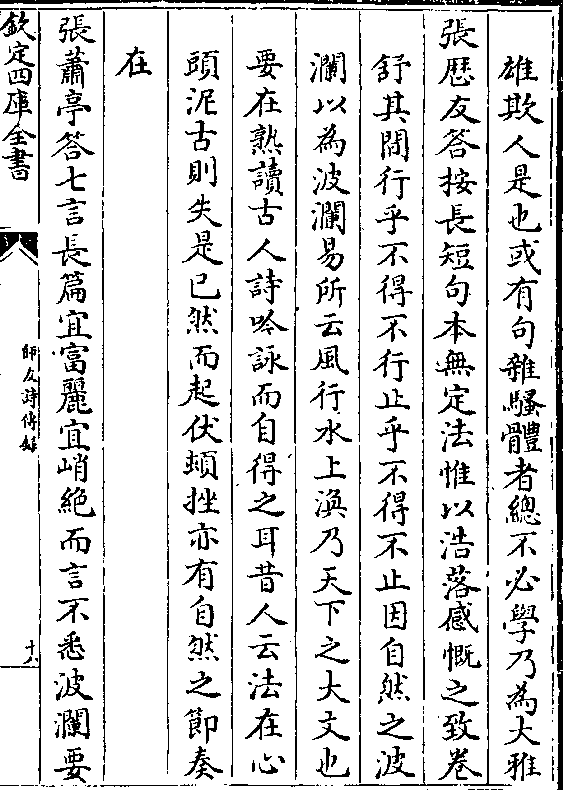 雄欺人是也或有句雜騷體者總不必學乃為大雅
張歴友答按長短句本無定法惟以浩落感慨之致卷
舒其間行乎不得不行止乎不得不止因自然之波
瀾以為波瀾易所云風行水上渙乃天下之大文也
要在熟讀古人詩吟詠而自得之耳昔人云法在心
頭泥古則失是已然而起伏頓挫亦有自然之節奏
在
張蕭亭答七言長篇宜富麗宜峭絶而言不悉波瀾要
欽定四庫全書
師友詩傳録
十六